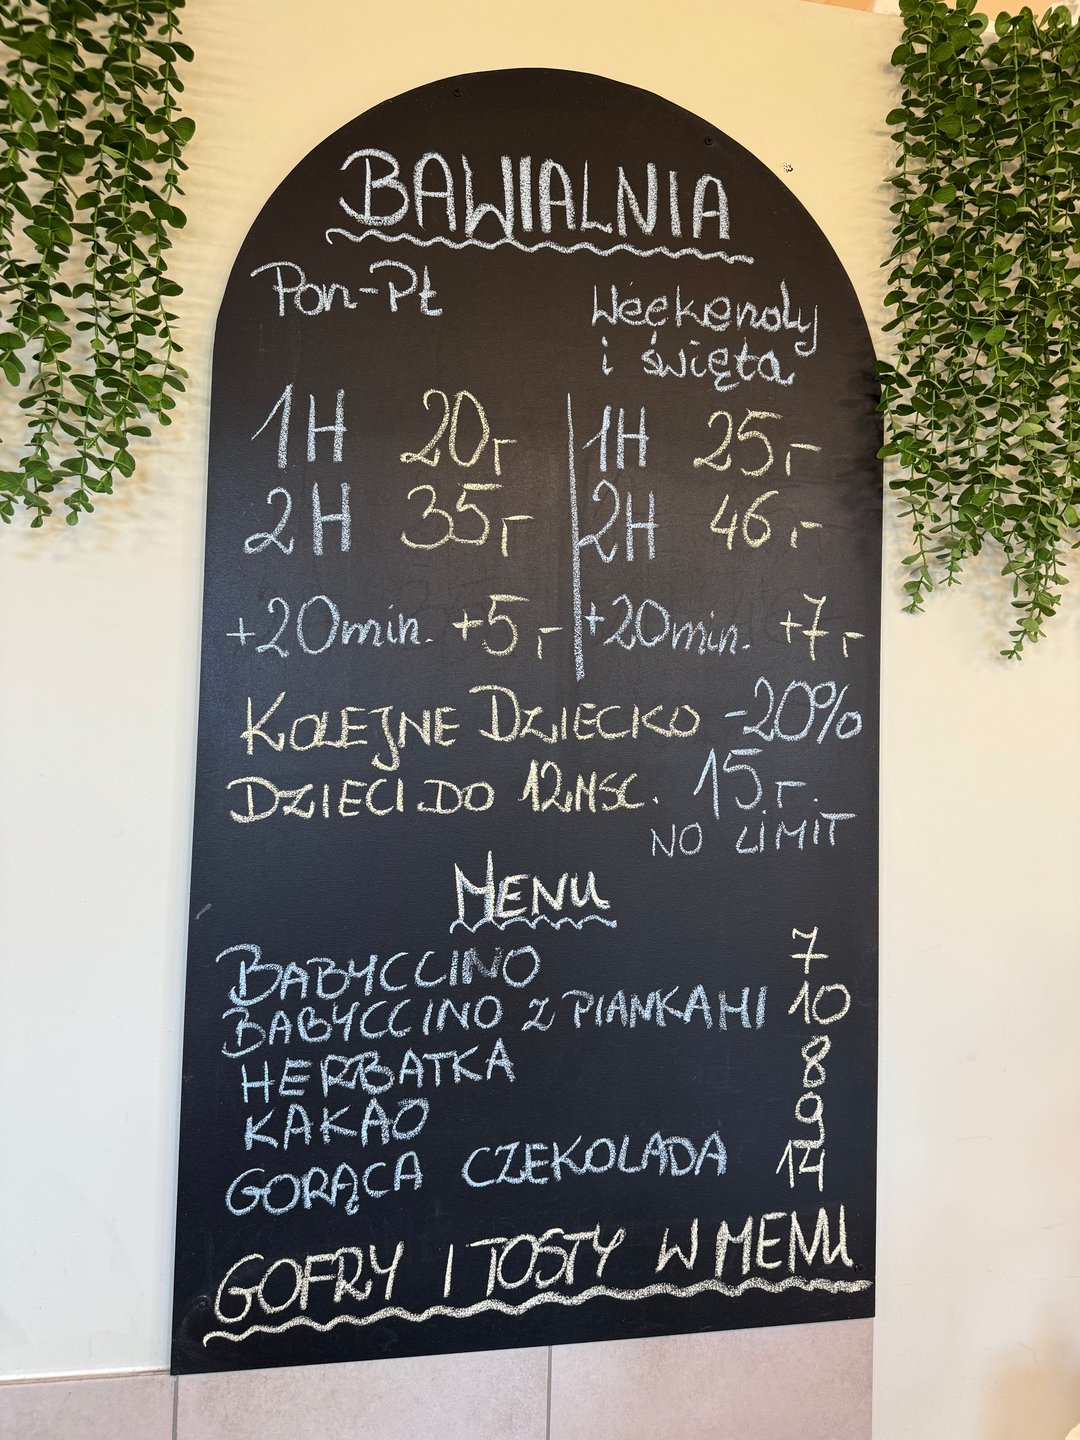 BAWIALNIA
Pon-Pt
Weekendy
i święta
1H 20,-
2H 35,-
+20min. +5,-
1H 25,-
2H 46,-
+20min. +7,-
KOLEJNE DZIECKO -20%
DZIECI DO 12 MSC. 15,-
NO LIMIT
MENU
BABYCCINO 7
BABYCCINO Z PIANKAMI 10
HERBATKA 8
KAKAO 9
GORĄCA CZEKOLADA 14
GOFRY I TOSTY W MENU